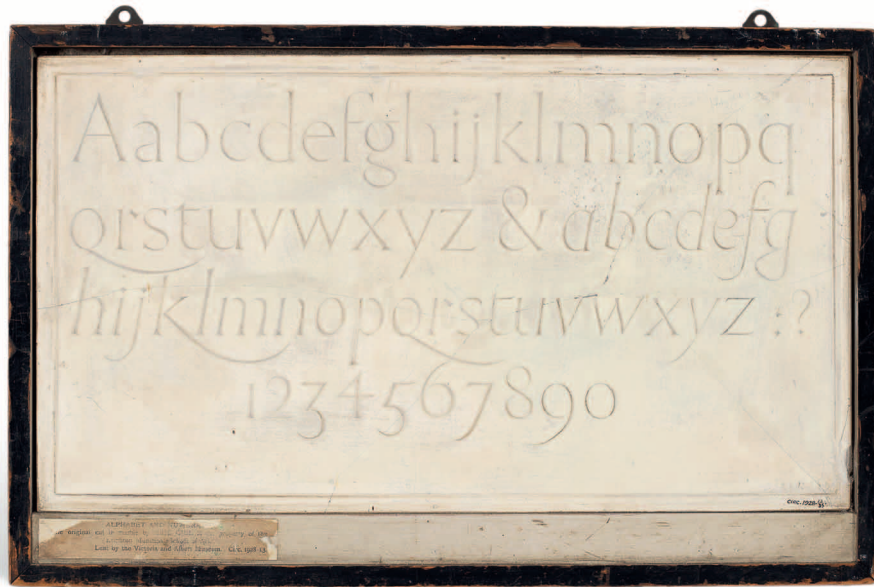 Aabcdefghijklmnopq
qrstuvwxyz & abcdefg
hijklmnopqrstuvwxyz :?
1234567890
CIRC. 1928-
ALPHABET AND
original cut in by property of the
Lent by the Victoria and Albert Museum. Circ. 1928-13.